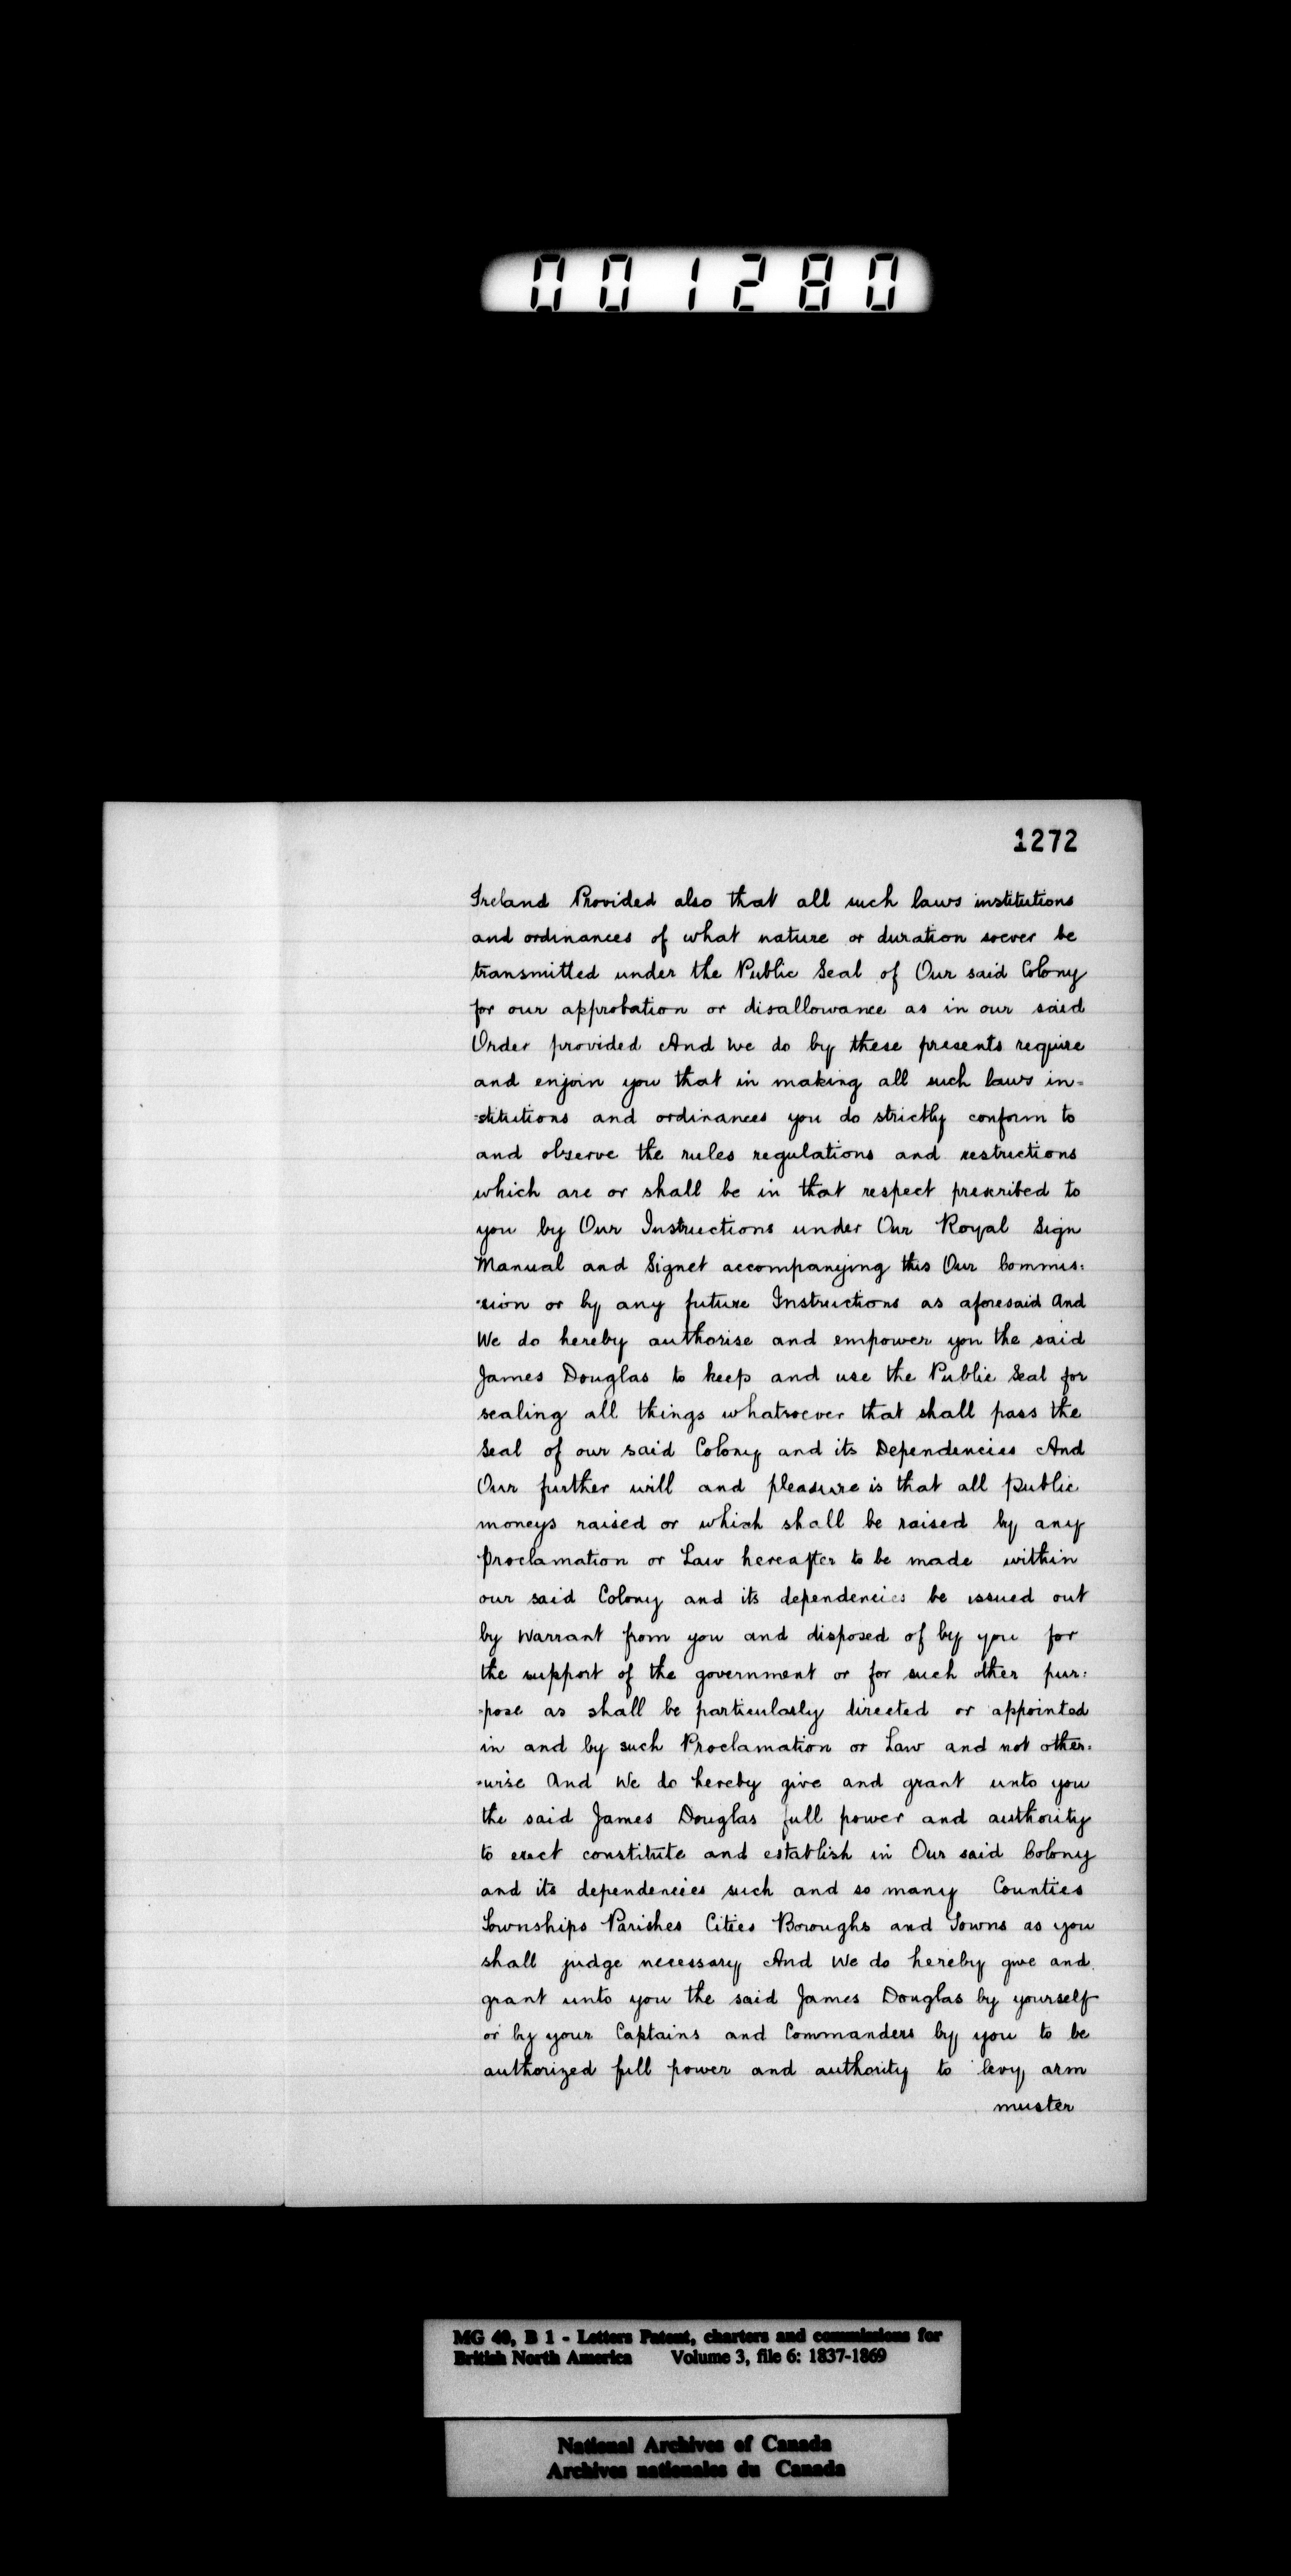 001280
1272
Ireland Provided also that all such laws institutions
and ordinances of what nature or duration soever be
transmitted under the Public Seal of Our said Colony
for our approbation or disallowance as in our said
Order provided And We do by these presents require
and enjoin you that in making all such laws in=
=stitutions and ordinances you do strictly conform to
and observe the rules regulations and restrictions
which are or shall be in that respect prescribed to
you by Our Instructions under Our Royal Sign
Manual and Signet accompanying this Our Commis:
:sion or by any future Instructions as aforesaid And
We do hereby authorise and empower you the said
James Douglas to keep and use the Public Seal for
sealing all things whatsoever that shall pass the
Seal of our said Colony and its Dependencies And
Our further will and pleasure is that all Public
moneys raised or which shall be raised by any
Proclamation or Law hereafter to be made within
our said Colony and its dependencies be issued out
by Warrant from you and disposed of by you for
the support of the government or for such other pur:
:pose as shall be particularly directed or appointed
in and by such Proclamation or Law and not other:
:wise And We do hereby give and grant unto you
the said James Douglas full power and authority
to erect constitute and establish in Our said Colony
and its dependencies such and so many Counties
Townships Parishes Cities Boroughs and Towns as you
shall judge necessary And We do hereby give and
grant unto you the said James Douglas by yourself
or by your Captains and Commanders by you to be
authorized full power and authority to levy arm
muster
MG 40, B 1 - Letters Patent, charters and commissions for
British North America Volume 3, file 6: 1837-1869
National Archives of Canada
Archives nationales du Canada